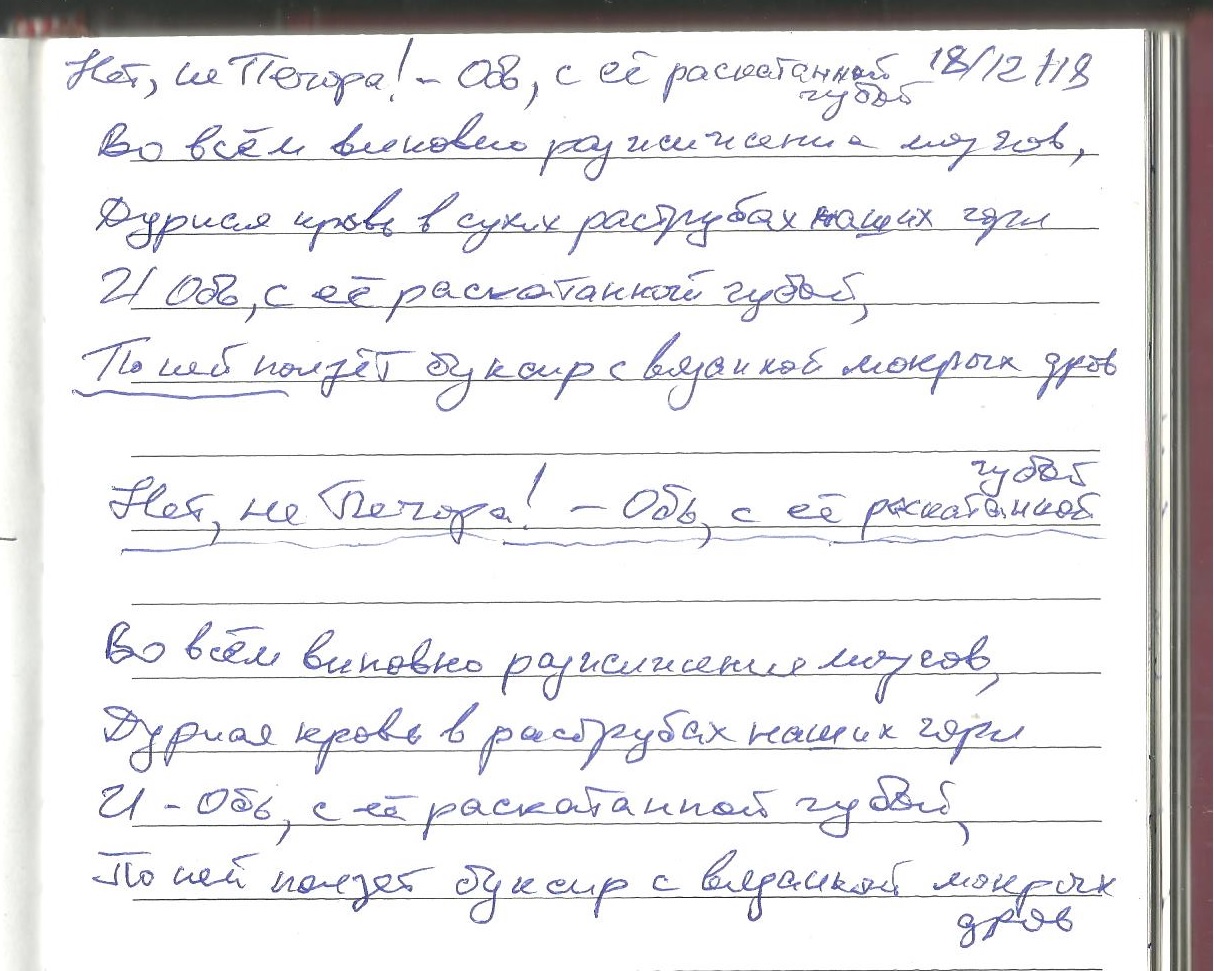 Нет, не Печора! – Обь, с её раскатанной губой 18/12/18
Во всём виновно разжижение мозгов,
Дурная кровь в сухих раструбах наших горл
И Обь, с её раскатанной губой,
По ней ползёт буксир с вязанкой мокрых дров
Нет, не Печора! – Обь, с её раскатанной губой
Во всём виновно разжижение мозгов,
Дурная кровь в раструбах наших горл
И – Обь, с её раскатанной губой,
По ней ползет буксир с вязанкой мокрых
дров